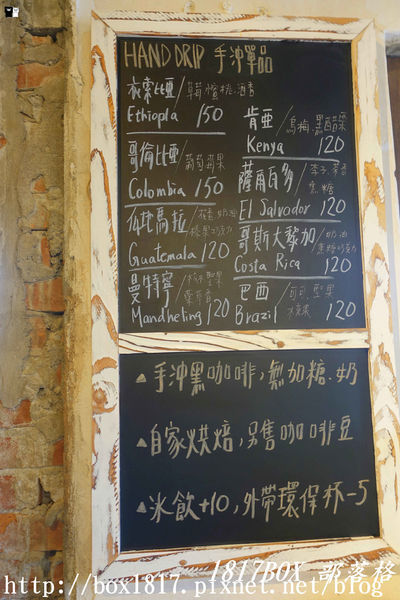 HAND DRIP 手沖單品
衣索比亞/草莓.蜜桃.酒香
Ethiopia 150
肯亞/烏梅.黑醋栗
Kenya 120
哥倫比亞/葡萄.堅果
Colombia 150
薩爾瓦多/李子.茶香
焦糖
El Salvador 120
瓜地馬拉/奶油
榛果巧克力
Guatemala 120
哥斯大黎加/奶油
焦糖巧克力
Costa Rica 120
曼特寧/堅果
Mandheling 120
巴西/堅果
Brazil 120
▲手沖黑咖啡,無加糖.奶
▲自家烘焙,只售咖啡豆
▲冰飲+10,外帶環保杯-5
1817BOX 部落格
http://box1817.pixnet.net/blog